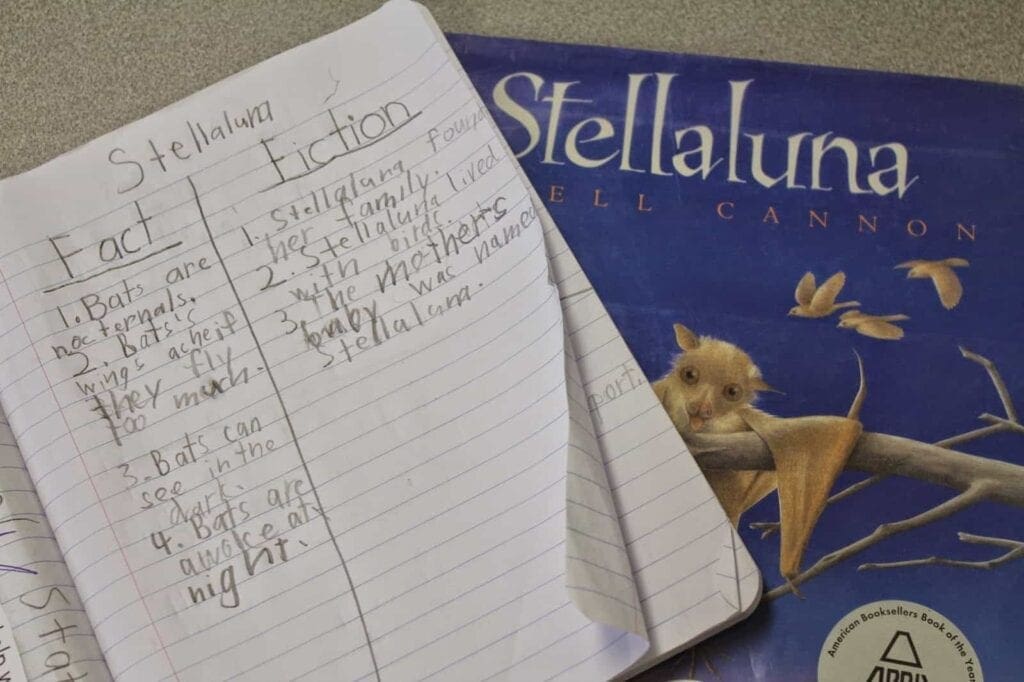 Stellaluna
Fact
1. Bats are
nocternals.
2. Bats's
wings acheif
they fly
too much.
3. Bats can
see in the
dark.
4. Bats are
awoke at
night.
Fiction
1. Stellaluna found
her family.
2. Stellaluna lived
with birds.
3. the mother's
baby was named
Stellaluna.
port.
Stellaluna
ELL CANNON
American Booksellers Book of the Year